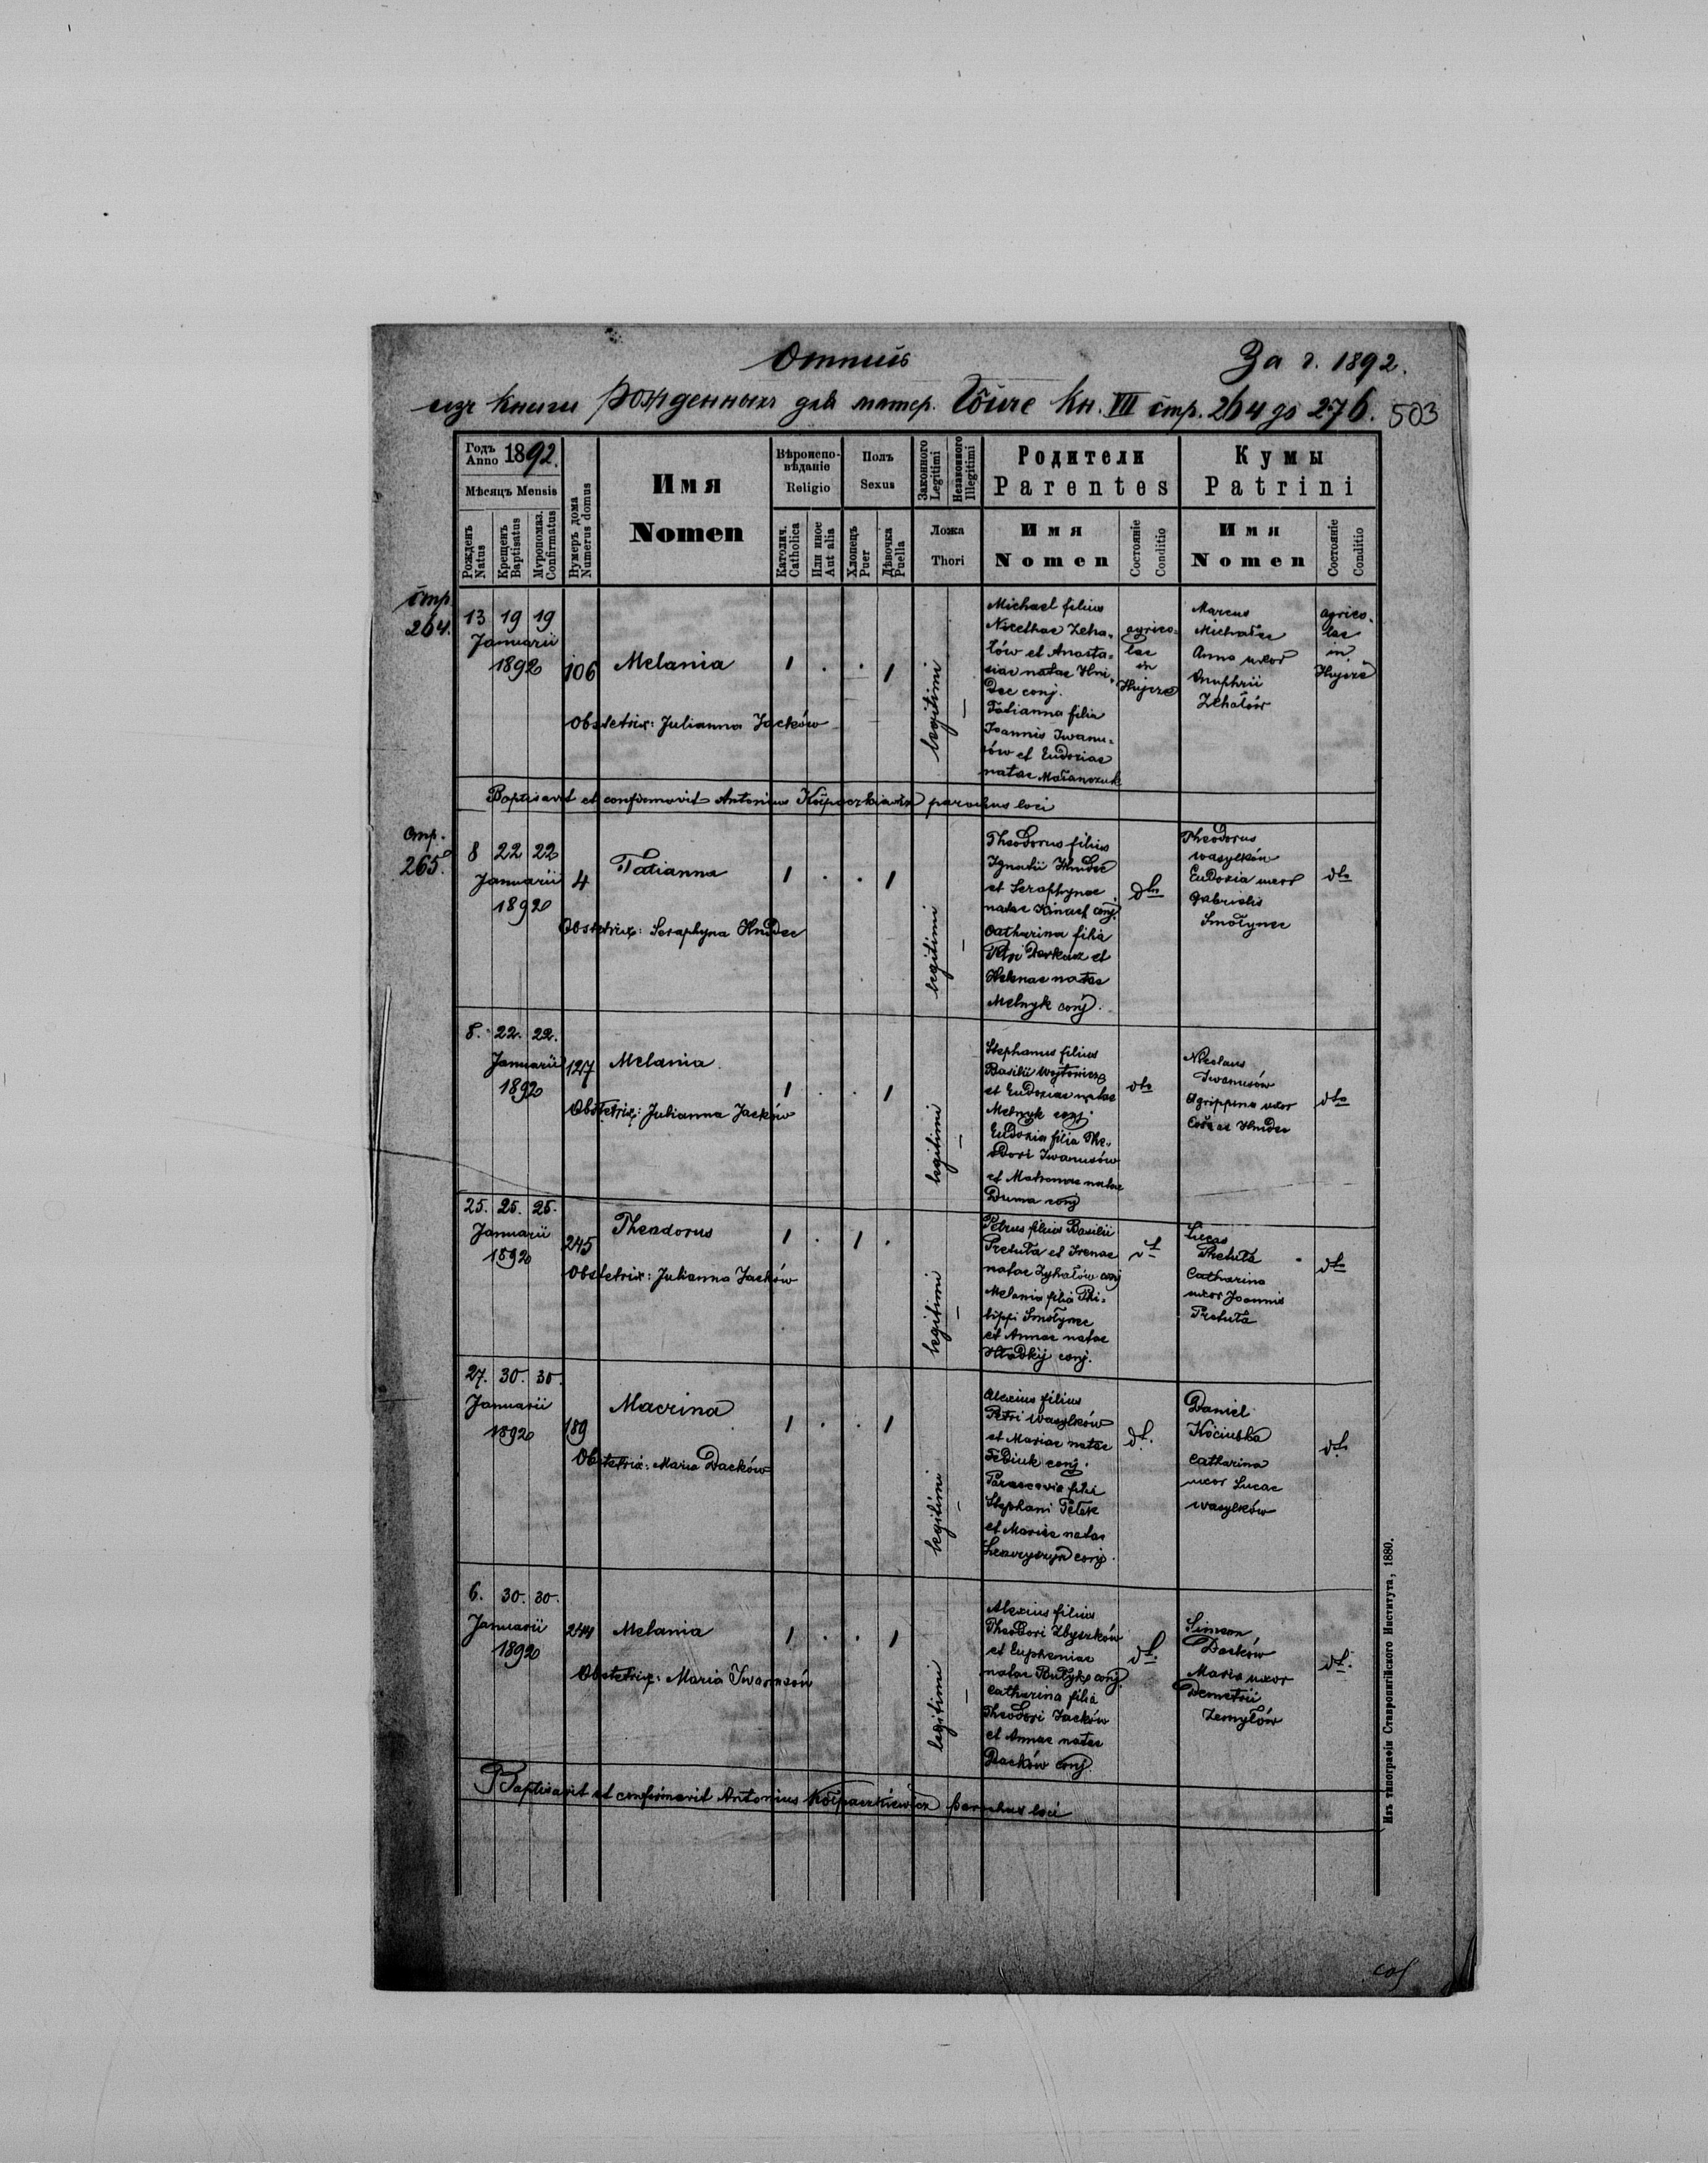 За г. 1892.
изъ книги рожденныхъ для матер. Кн. VII стр. 264 до 276. 503
Годъ Anno 1892.
Мѣсяцъ Mensis
Рожденъ Natus
Крещенъ Baptisatus
Мѵропомаз. Confirmatus
Нумеръ дома Numerus domus
Имя
Nomen
Вѣроиспо-
вѣданіе
Religio
Католич. Catholica
Или иное Aut alia
Полъ
Sexus
Хлопецъ Puer
Дѣвочка Puella
Законного Legitimi
Незаконного Illegitimi
Ложа
Thori
Родители
Parentes
Имя
Nomen
Состояніе Conditio
Кумы
Patrini
Имя
Nomen
Состояніе Conditio
стр.
264.
13 19 19
Januarii
1892
106
Melania
1 . . 1
legitimi
Obstetrix: Julianna Jacków
Michael filius
Nicethae Zeha-
łów et Anasta-
siae natae Hni-
dec conj.
Tatianna filia
Joannis Iwanu-
sów et Eudoxiae
natae
agrico-
lae
in
Hujcze
Marcus
Anna uxor
Onuphrii
Zehałów
agrico-
lae
in
Hujcze
Baptisavit et confirmavit Antonius parochus loci
стр.
265.
8 22 22
Januarii
1892
4
Tatianna
1 . . 1
legitimi
Obstetrix: Seraphyna Hnidec
Theodorus filius
Ignatii Hnidec
et Seraphynae
natae conj.
Catharina filia
Petri et
Helenae natae
Melnyk conj.
dto
Theodorus
Wasylków
Eudoxia uxor
Gabrielis
Smołynec
dto
8. 22. 22.
Januarii
1892
127
Melania
1 . . 1
legitimi
Obstetrix: Julianna Jacków
Stephanus filius
Basilii Wojtowicz
et Eudoxiae natae
Melnyk conj.
Eudoxia filia The-
odori Iwanusów
et Matronae natae
Duma conj
dto
Nicolaus
Iwanusów
Agrippina uxor
Hnidec
dto
25. 25. 25.
Januarii
1892
245
Theodorus
1 . 1 .
legitimi
Obstetrix: Julianna Jacków
Petrus filius Basilii
Pretuła et Irenae
natae Zyhałów conj
Melania filia Phi-
lippi Smołynec
et Annae natae
Hładkij conj.
dt
Lucas
Pretuła
Catharina
uxor Joannis
Pretuła
dto
27. 30. 30.
Januarii
1892
189
Macrina
1 . . 1
legitimi
Obstetrix: Maria Dacków
Alexius filius
Petri Wasylków
et Mariae natae
Fediuk conj.
Parascevia filia
Stephani
et Mariae natae
conj.
dt.
Daniel
Kociubka
Catharina
uxor Lucae
Wasylków
dt.
6. 30. 30.
Januarii
1892
244
Melania
1 . . 1
legitimi
Obstetrix: Maria Iwanusów
Alexius filius
Theodori Zbyszków
et Eupheniae
natae conj
Catharina filia
Theodori Jacków
et Annae natae
Dacków conj.
dt.
Simeon
Dacków
Maria uxor
Demetrii
Zemyłów
dt.
Baptisavit et confirmavit Antonius parochus loci
Изъ типографіи Ставропигійского Института, 1880.